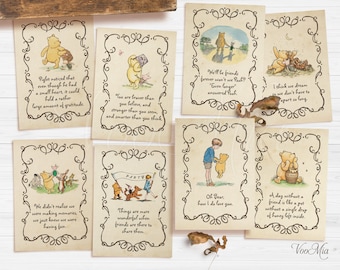 Piglet noticed that even
though he had a small heart, it could
hold a rather
large amount of gratitude
You are braver than
you believe, and
stronger than you seem,
and smarter than you think
We'll be friends
forever won't we Pooh?
"Even longer"
answered Pooh.
I think we dream
so we don't have to
apart so long
We didn't realize we
were making memories,
we just knew we were
having fun.
Things are more
wonderful when
friends are there to
share them...
Oh Bear,
how I do love you.
A day without a
friend is like a pot
without a single drop
of honey left inside
VooMia